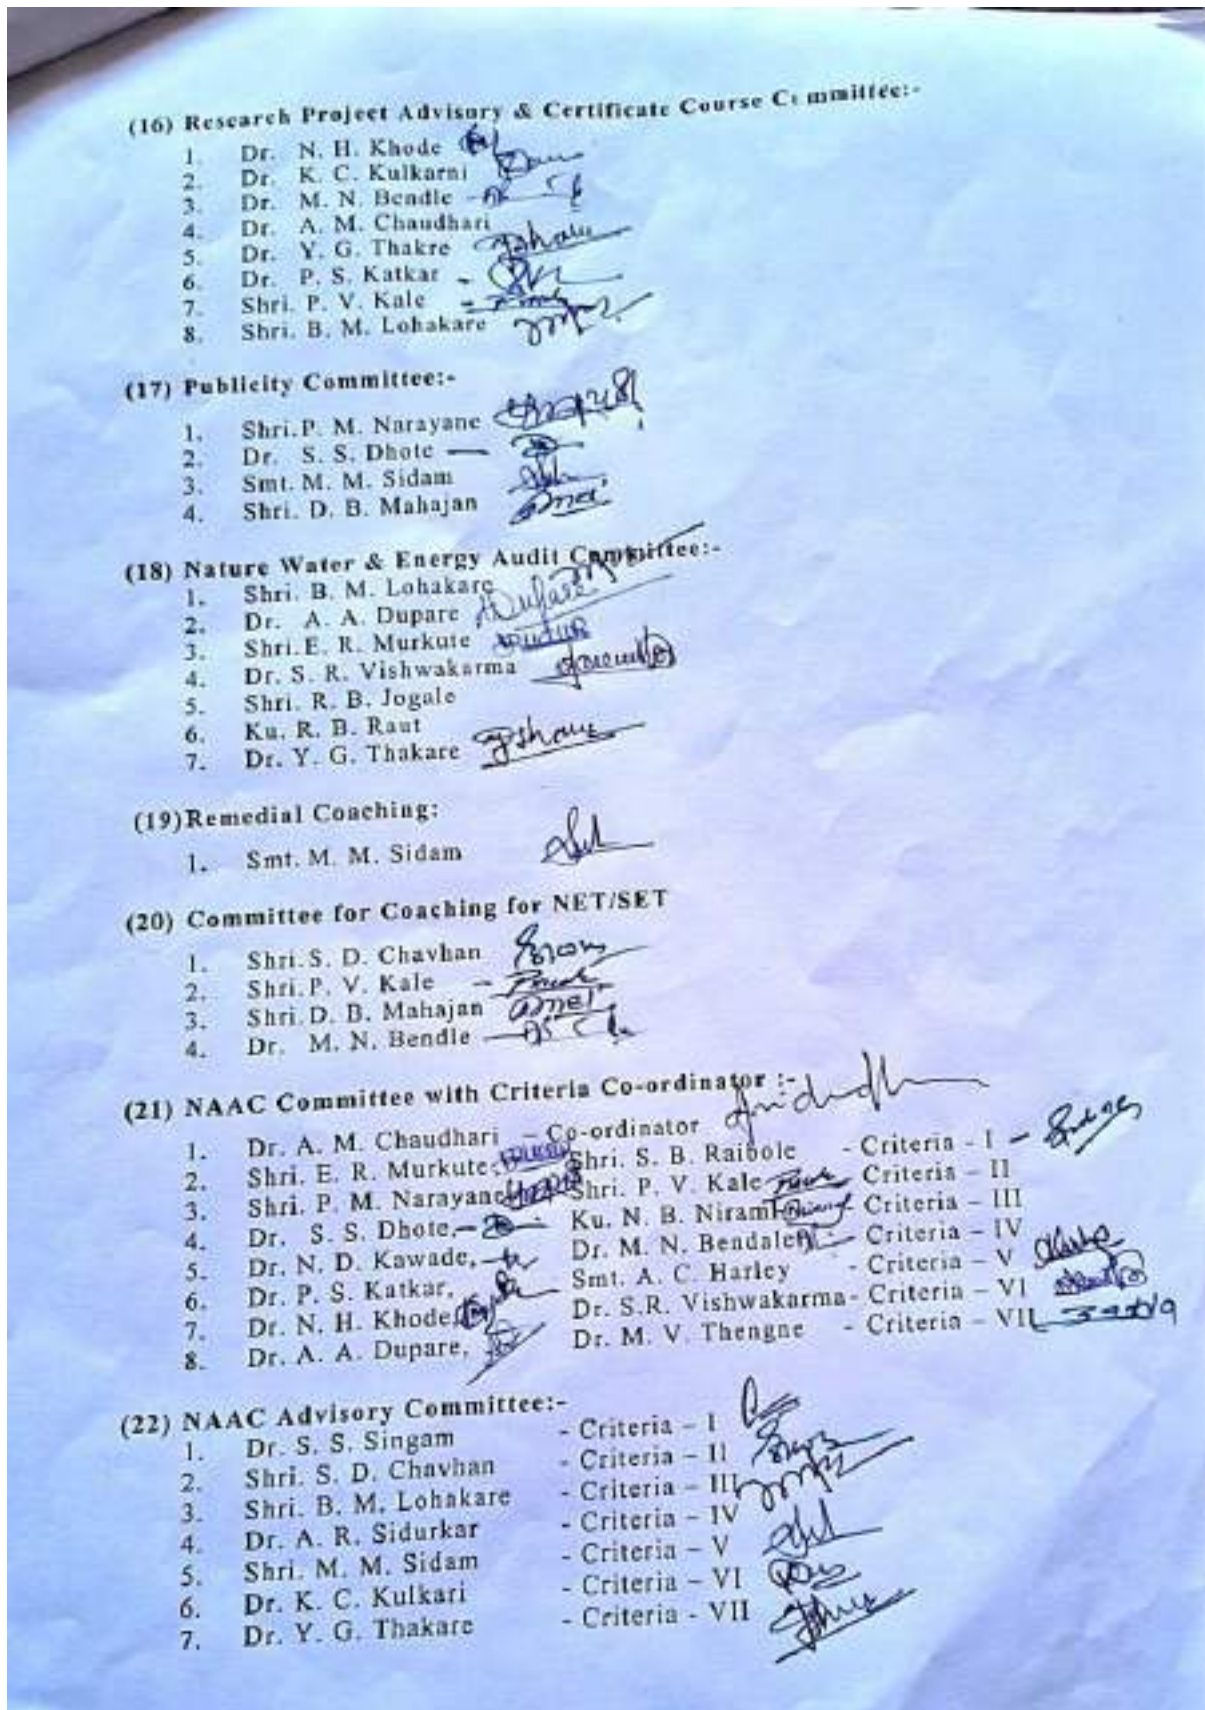 (16) Research Project Advisory & Certificate Course Committee:-
1. Dr. N. H. Khode
2. Dr. K. C. Kulkarni
3. Dr. M. N. Bendle -
4. Dr. A. M. Chaudhari
5. Dr. Y. G. Thakre
6. Dr. P. S. Katkar -
7. Shri. P. V. Kale -
8. Shri. B. M. Lohakare
(17) Publicity Committee:-
1. Shri. P. M. Narayane
2. Dr. S. S. Dhote -
3. Smt. M. M. Sidam
4. Shri. D. B. Mahajan
(18) Nature Water & Energy Audit Committee:-
1. Shri. B. M. Lohakare
2. Dr. A. A. Dupare Dupare
3. Shri. E. R. Murkute
4. Dr. S. R. Vishwakarma
5. Shri. R. B. Jogale
6. Ku. R. B. Raut
7. Dr. Y. G. Thakare
(19) Remedial Coaching:
1. Smt. M. M. Sidam
(20) Committee for Coaching for NET/SET
1. Shri. S. D. Chavhan
2. Shri. P. V. Kale -
3. Shri. D. B. Mahajan
4. Dr. M. N. Bendle -
(21) NAAC Committee with Criteria Co-ordinator :-
1. Dr. A. M. Chaudhari - Co-ordinator
2. Shri. E. R. Murkute, Shri. S. B. Raibole - Criteria - I -
3. Shri. P. M. Narayane Shri. P. V. Kale - Criteria - II
4. Dr. S. S. Dhote, - Ku. N. B. Niramk - Criteria - III
5. Dr. N. D. Kawade, - Dr. M. N. Bendale - Criteria - IV
6. Dr. P. S. Katkar, Smt. A. C. Harley - Criteria - V
7. Dr. N. H. Khode, Dr. S.R. Vishwakarma- Criteria - VI
8. Dr. A. A. Dupare, Dr. M. V. Thengne - Criteria - VII
(22) NAAC Advisory Committee:-
1. Dr. S. S. Singam - Criteria - I
2. Shri. S. D. Chavhan - Criteria - II
3. Shri. B. M. Lohakare - Criteria - III
4. Dr. A. R. Sidurkar - Criteria - IV
5. Shri. M. M. Sidam - Criteria - V
6. Dr. K. C. Kulkari - Criteria - VI
7. Dr. Y. G. Thakare - Criteria - VII